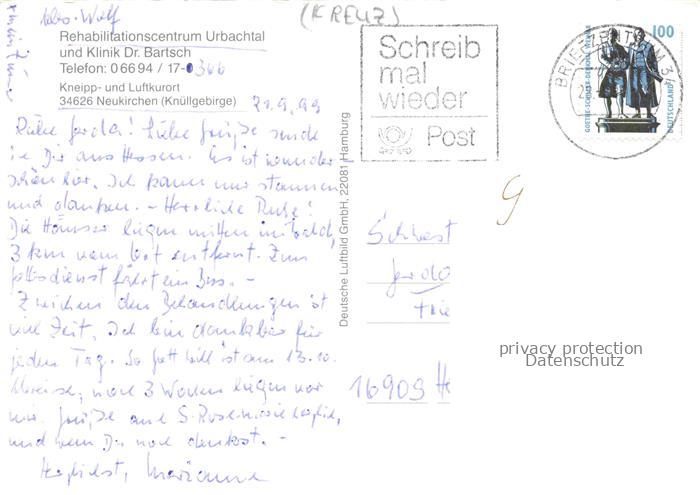 (KREUZ)
Rehabilitationszentrum Urbachtal
und Klinik Dr. Bartsch
Telefon: 0 66 94 / 17-0 366
Kneipp- und Luftkurort
34626 Neukirchen (Knüllgebirge)
21.9.99
Liebe Gerda! Liebe Grüße sende
ich Dir aus Hessen. Es ist wunder
schön hier. Ich kann nur staunen
und danken. - Herrliche Ruhe!
Die Häuser liegen mitten im Wald,
3 km vom Ort entfernt. Zum
fährt ein Bus. -
Zwischen den Behandlungen ist
viel Zeit. Ich bin dankbar für
jeden Tag. So Gott will ist am 13.10.
Abreise, noch 3 Wochen liegen vor
mir. Grüße auch S. Rosemarie
und wenn Du noch denkst. -
Herzlichst, Marianne
Deutsche Luftbild GmbH, 22081 Hamburg
Schreib
mal
wieder
Post
BRIEFZENTRUM 3
100
GOETHE-SCHILLER-DENKMAL WEIMAR
DEUTSCHLAND
9
Schwest
Gerda
16909
privacy protection
Datenschutz